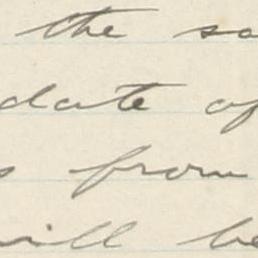 the sa
date of
s from
will be